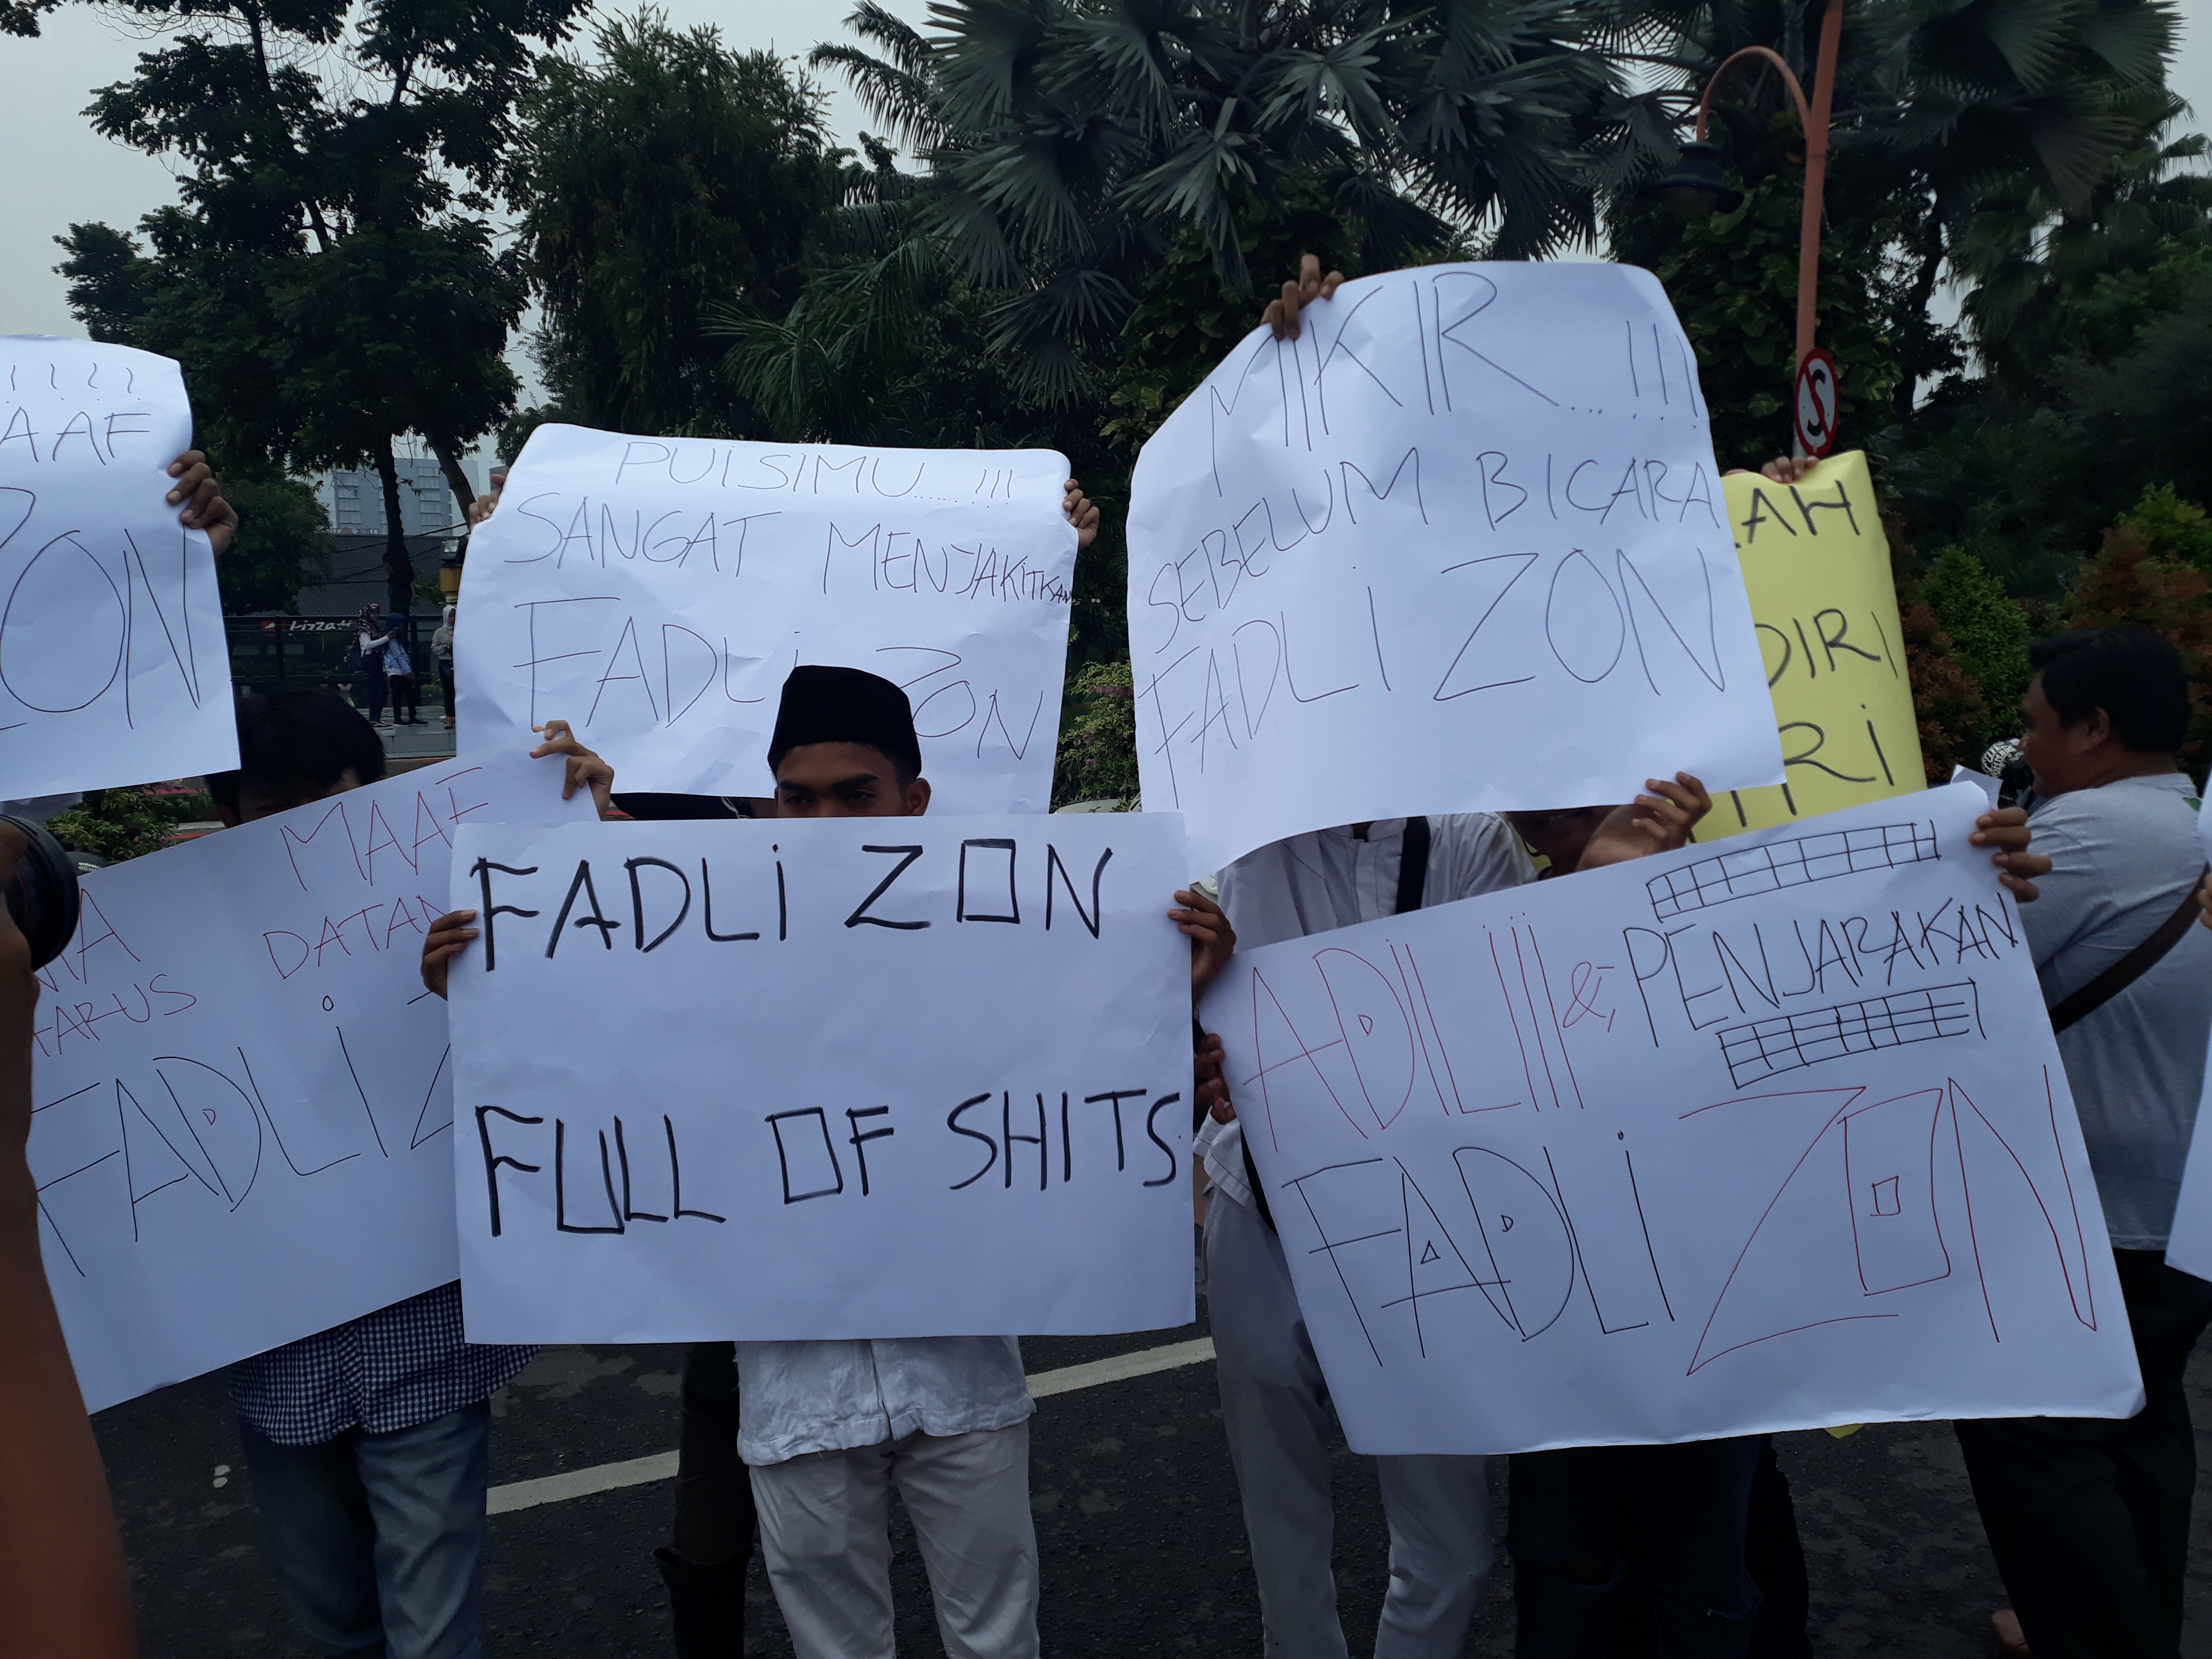 !!!!!
ZON
PUISIMU......!!!
SANGAT MENYAKITKAN
FADLI ZON
MIKIR....!!!
SEBELUM BICARA
FADLI ZON
MAAF
FADLI
FADLI ZON
FULL OF SHITS
ADILI!! & PENJARAKAN
FADLI ZON